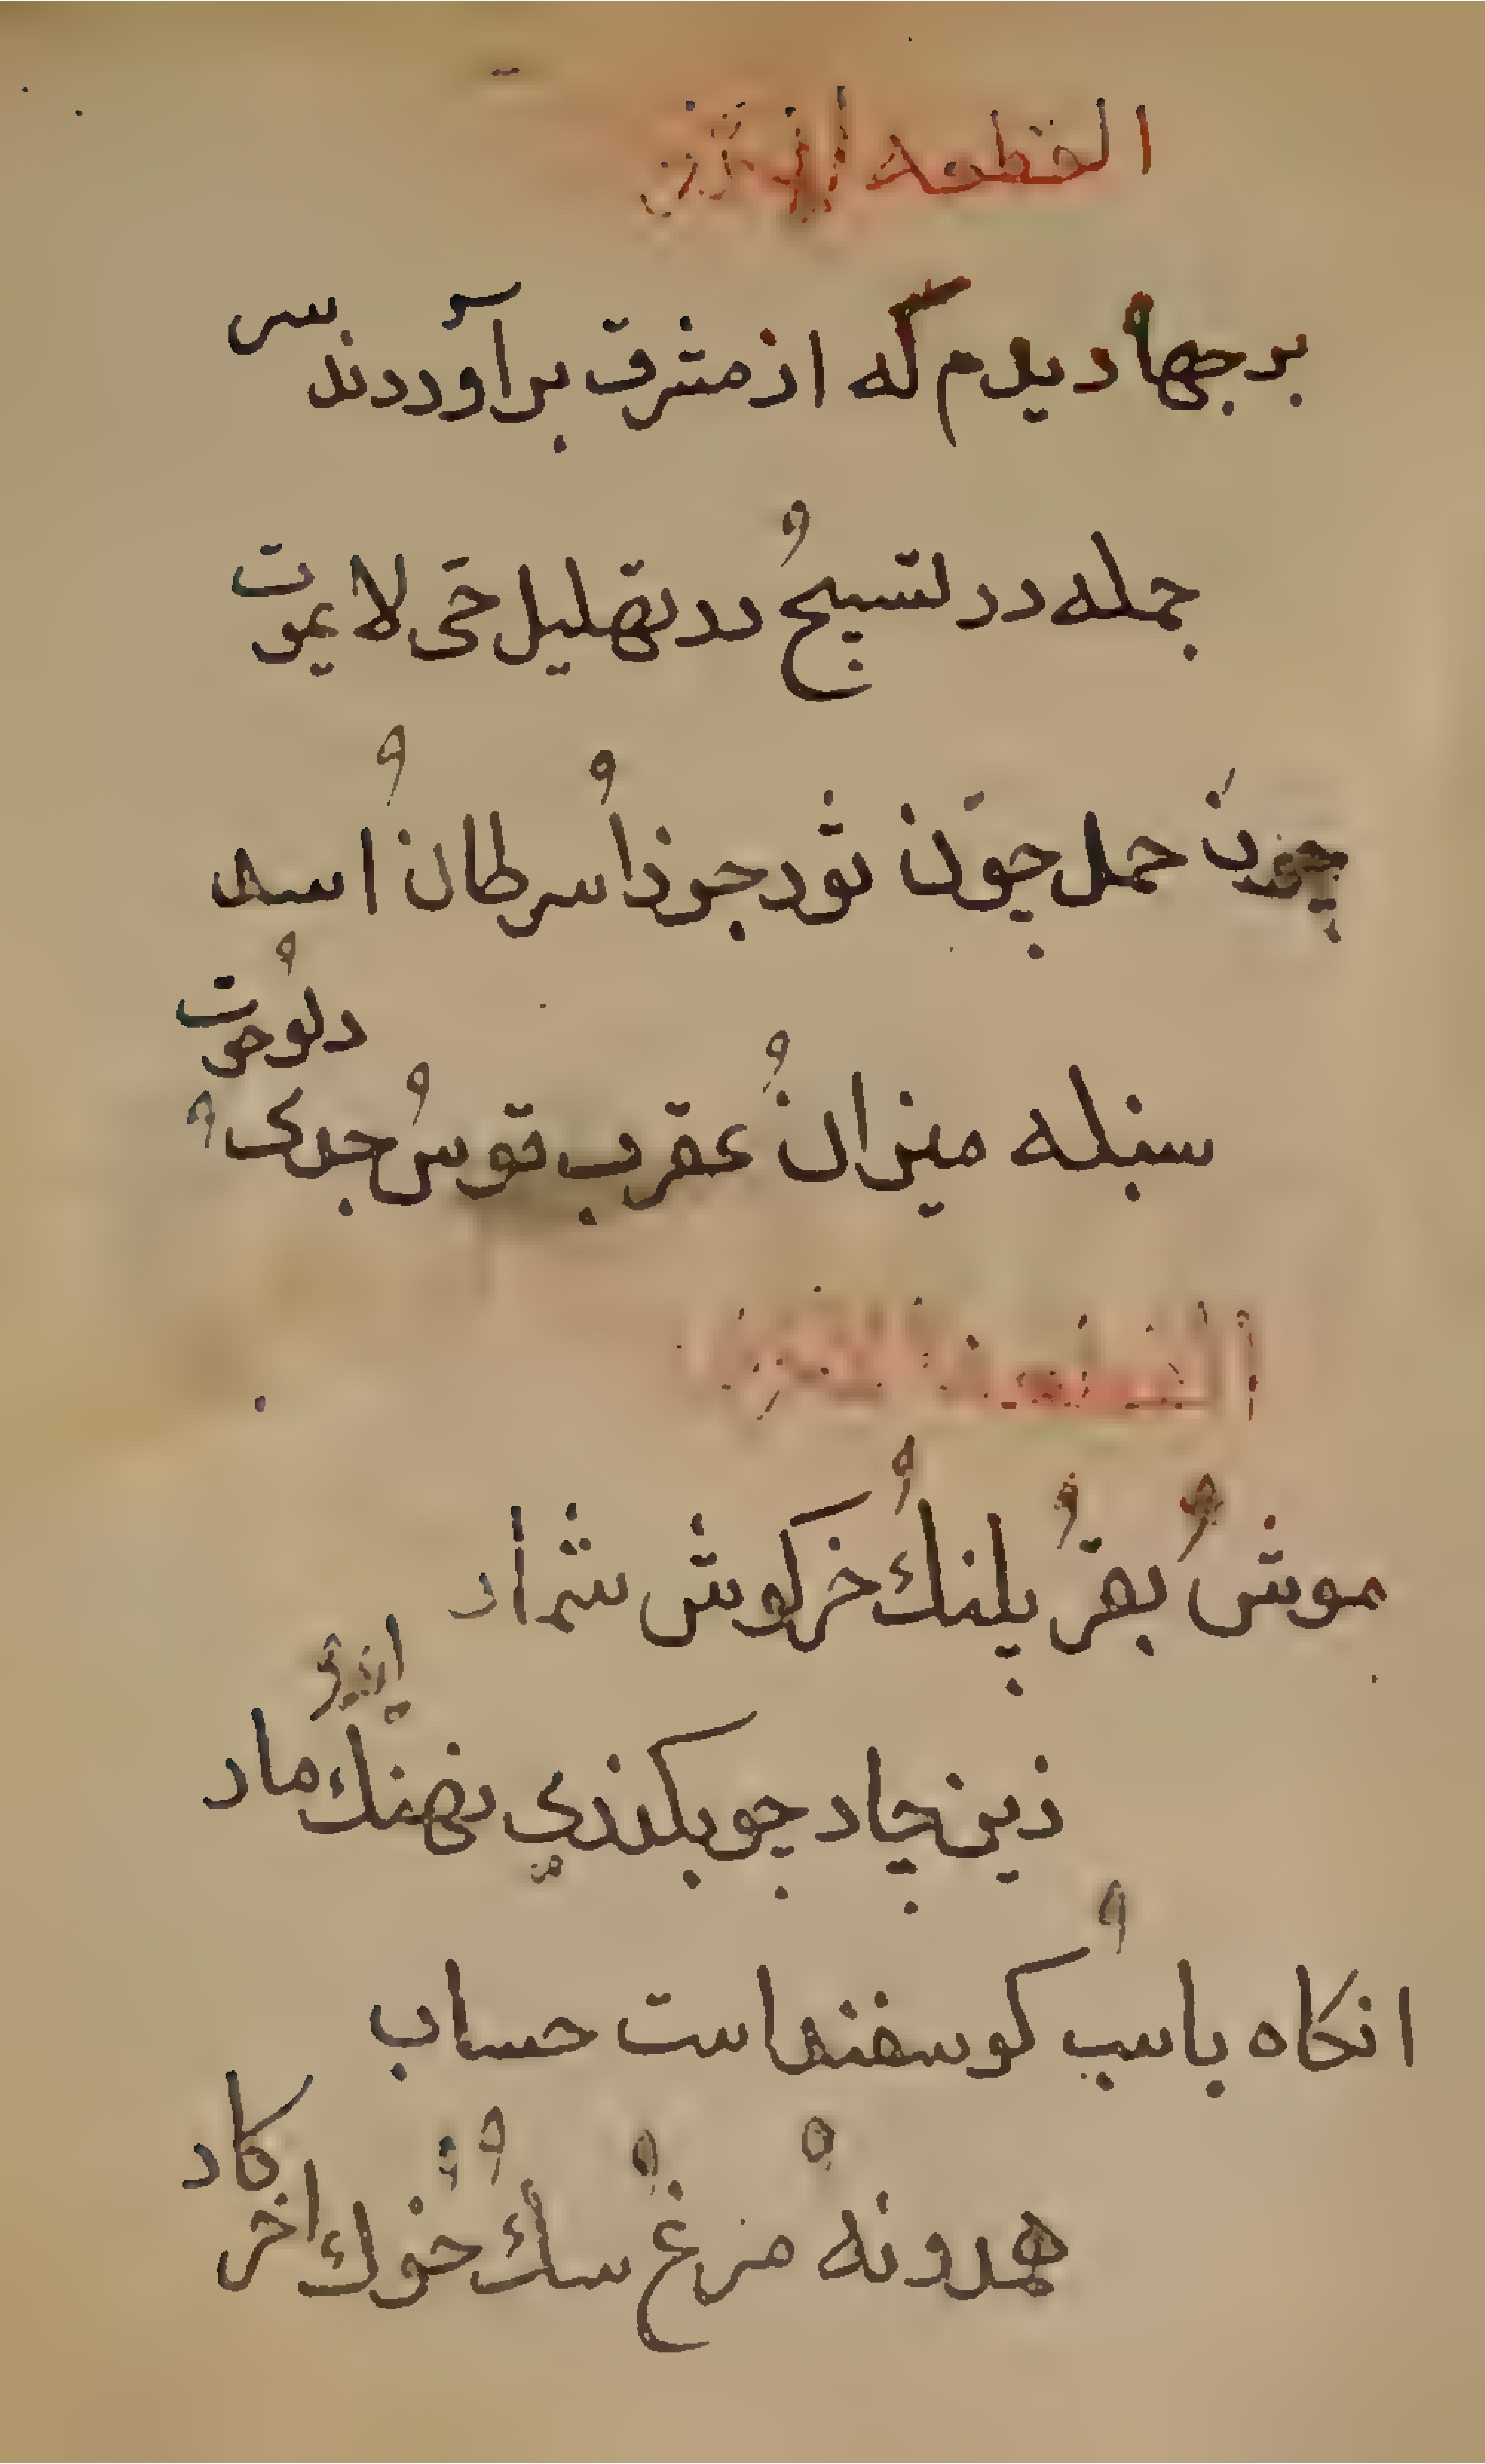 القطعه
برجها ديدم كه از مشرق برآوردند سر
جمله در تسبيح و در تهليل حى لا يموت
چون حمل چون ثور جوزا و سرطان و اسد
سنبله ميزان و عقرب قوس و جدى و دلو و حوت
موش و بقر و پلنك و خركوش شمار
زين چار چو بكذري نهنك ايد و مار
انكاه باسب و كوسفند است حساب
همدونه و مرغ و سك و خوك اخر كار